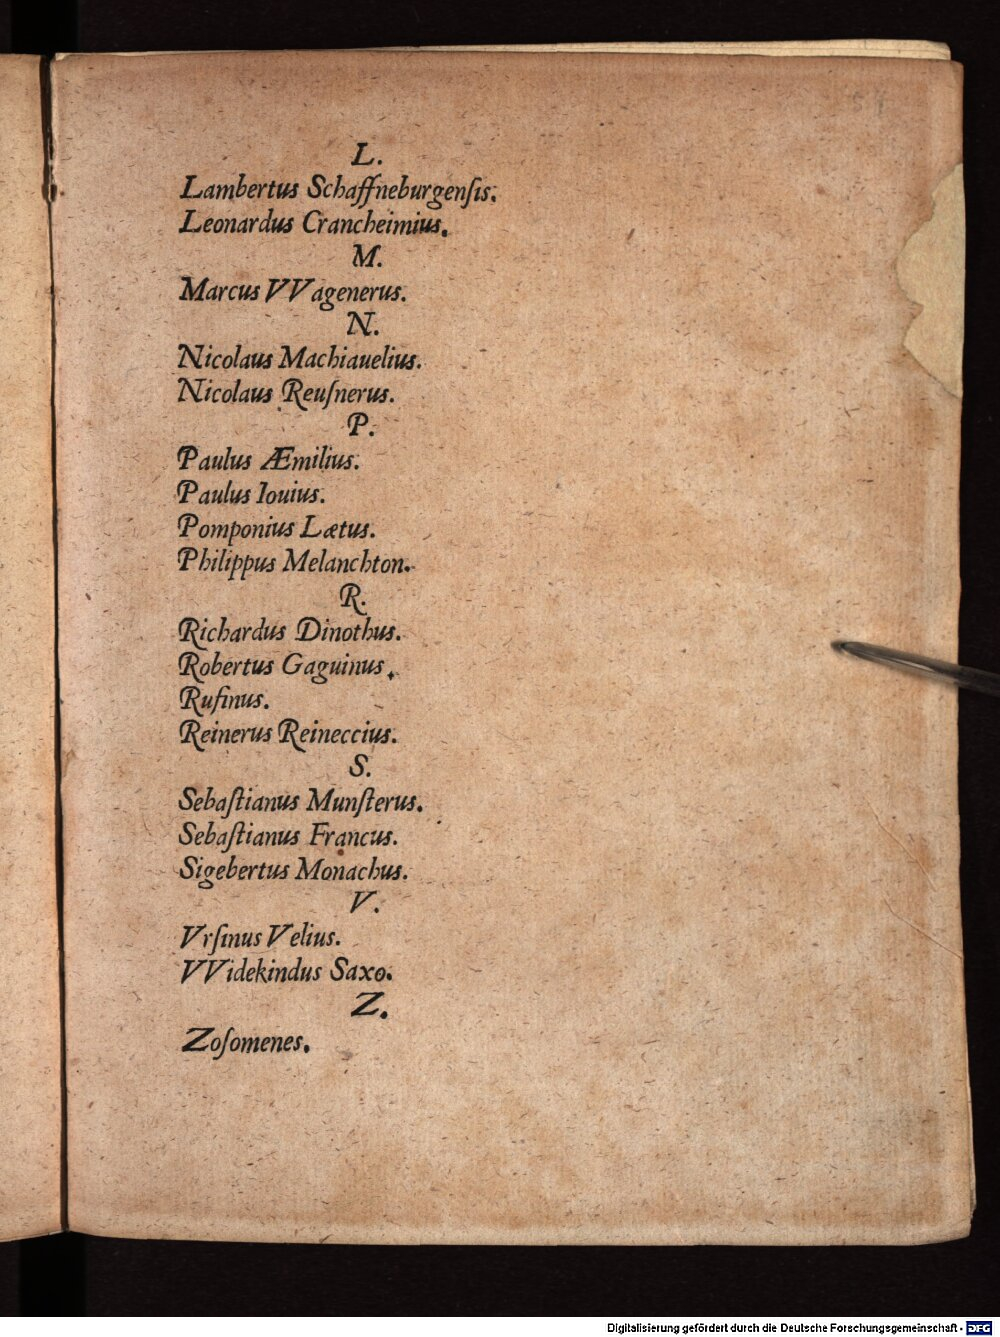 L.
Lambertus Schaffneburgenſis.
Leonardus Crancheimius.
M.
Marcus VVagenerus.
N.
Nicolaus Machiauelius.
Nicolaus Reuſnerus.
P.
Paulus Æmilius.
Paulus Iouius.
Pomponius Lætus.
Philippus Melanchton.
R.
Richardus Dinothus.
Robertus Gaguinus.
Rufinus.
Reinerus Reineccius.
S.
Sebaſtianus Munſterus.
Sebaſtianus Francus.
Sigebertus Monachus.
V.
Vrſinus Velius.
VVidekindus Saxo.
Z.
Zoſomenes.
Digitalisierung gefördert durch die Deutsche Forschungsgemeinschaft - DFG